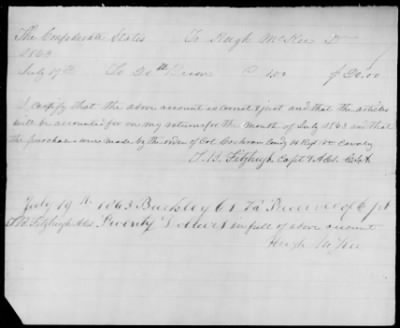 The Confederate States To Hugh McKee Dr
1863
July 19th To 20 lb Bacon @ 1.00 $20.00
I certify that the above account is correct & just and that the articles
will be accounted for on my return for the month of July 1863 and that
the purchase were made by the order of Col Cochran Comdg 14 Regt Va Cavalry
T. B. Fitzhugh Capt & A.C.S.
July 19th 1863 Buckley Co Va Received of Capt
Fitzhugh ACS Twenty Dollars in full of above account
Hugh McKee